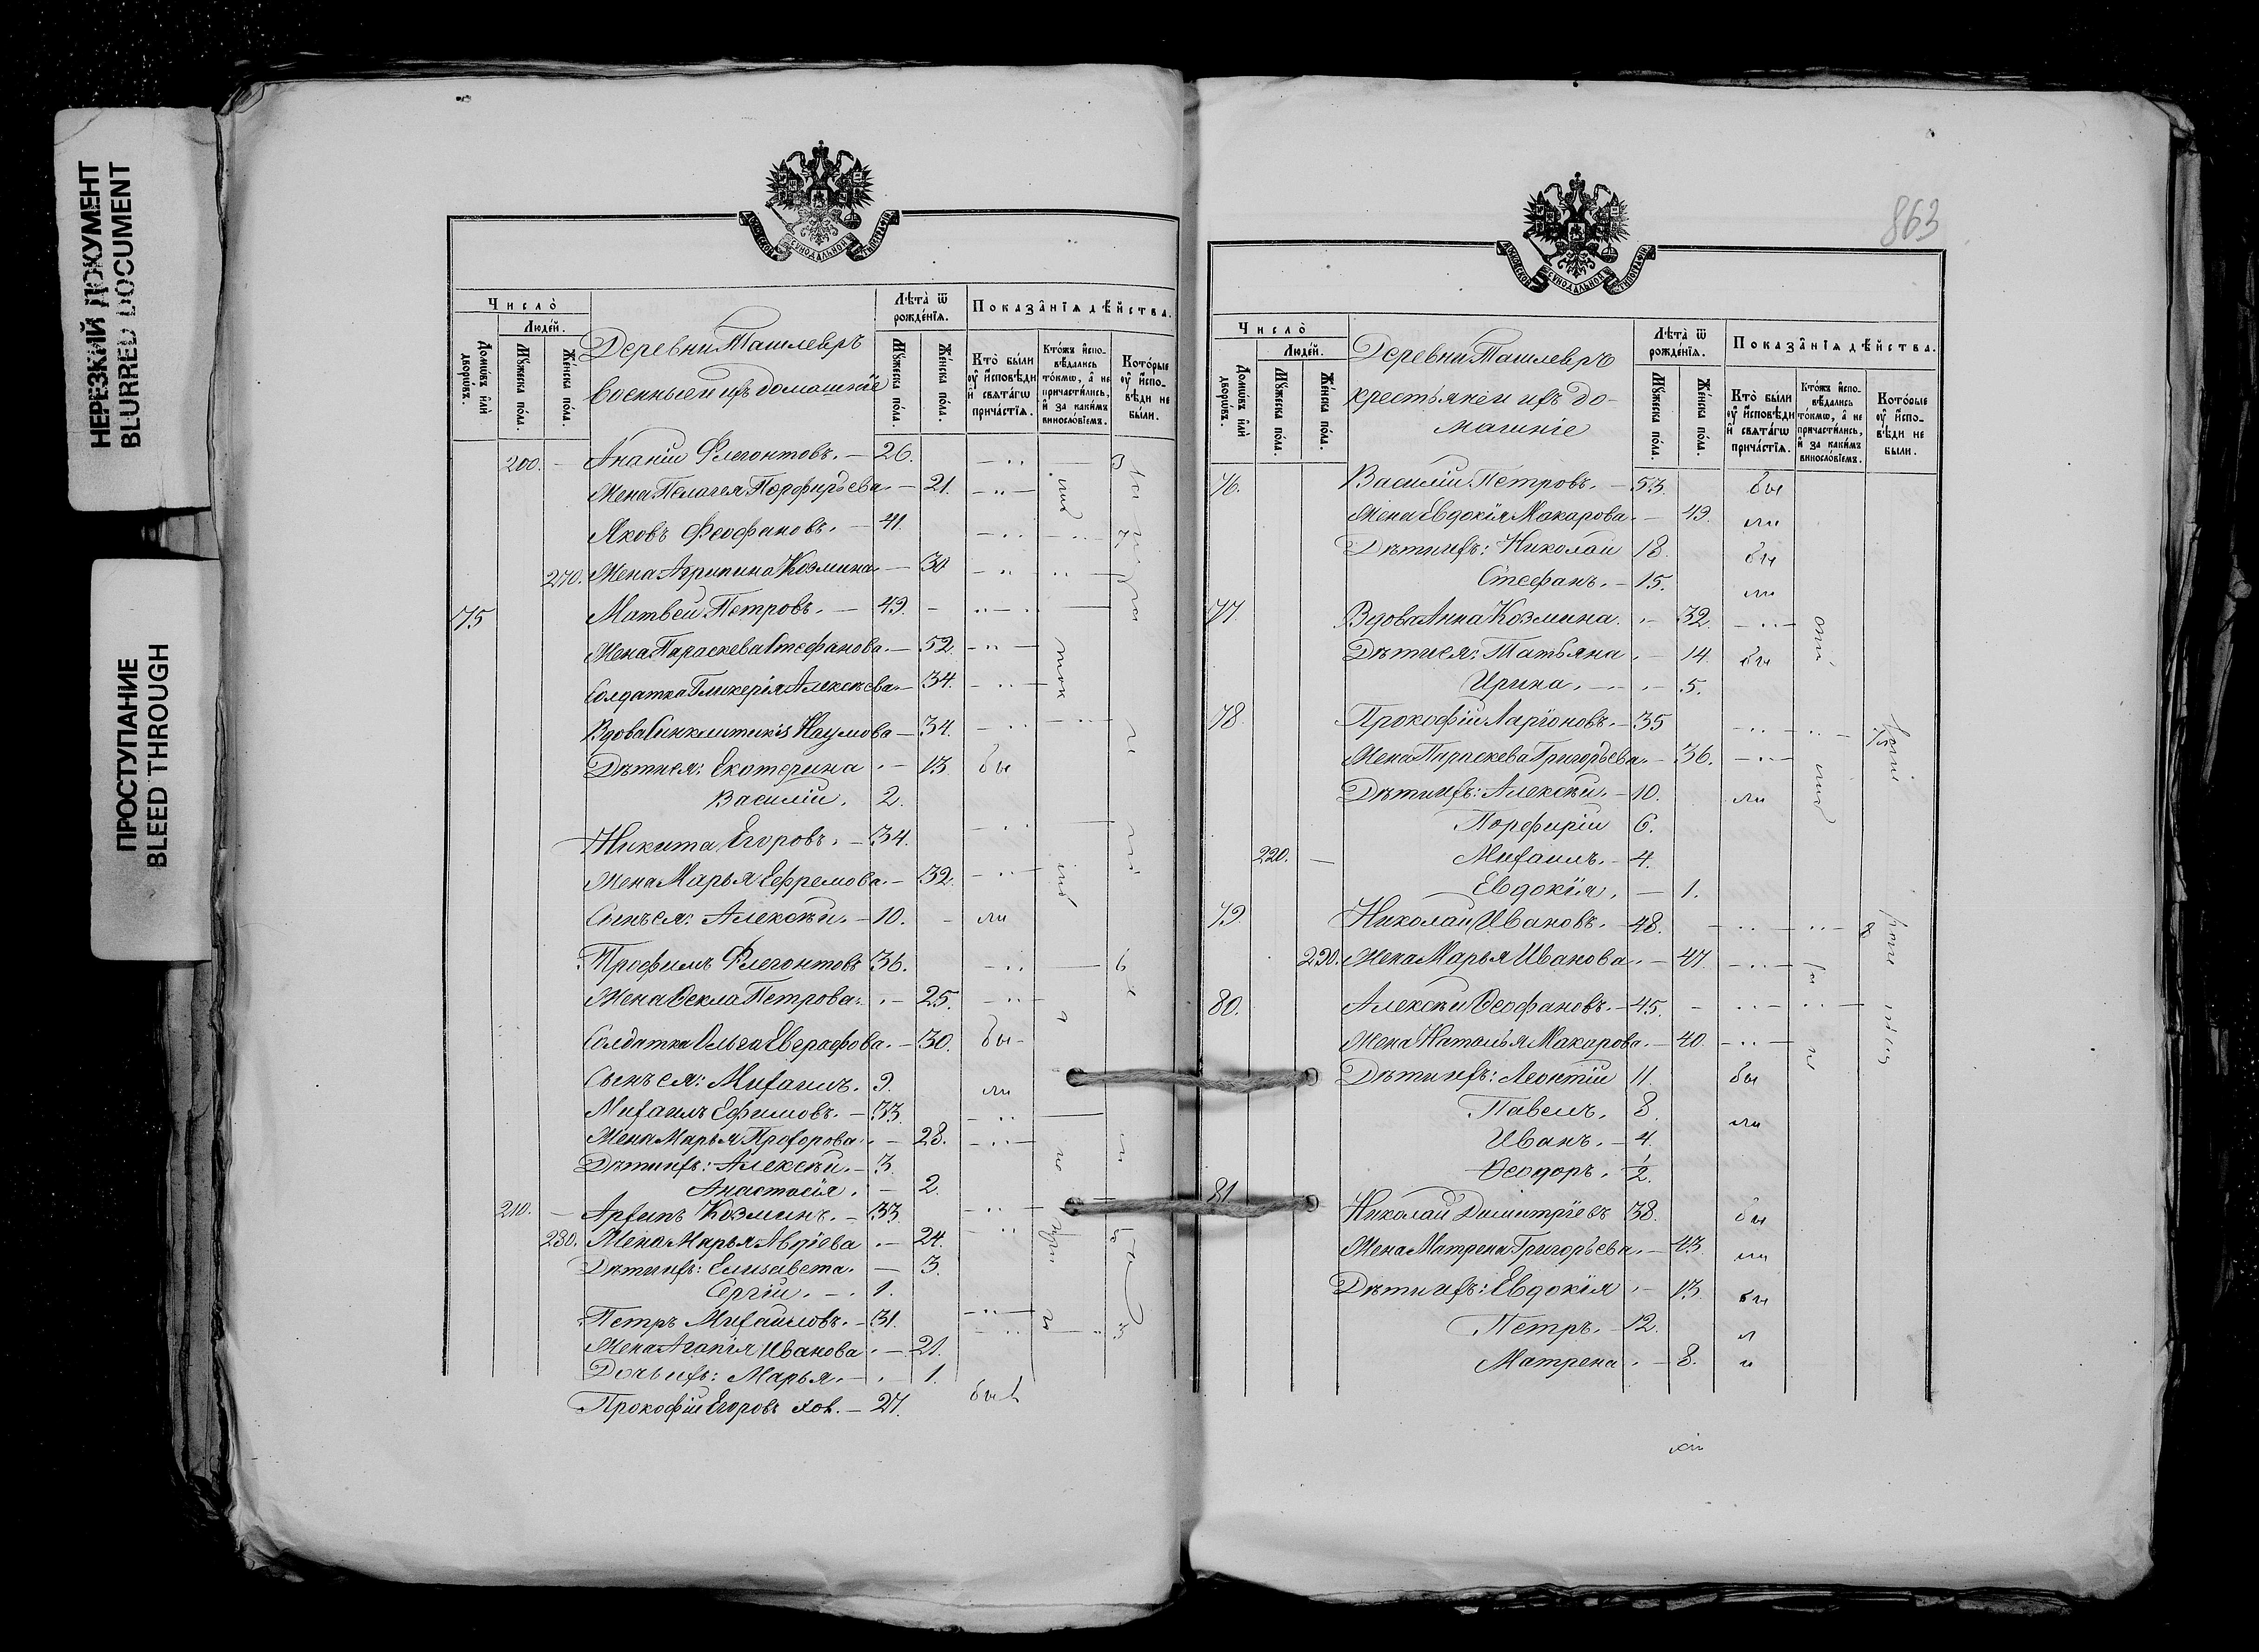 НЕРЕЗКИЙ ДОКУМЕНТ
BLURRED DOCUMENT
ПРОСТУПАНИЕ
BLEED THROUGH
МОСКОВСКОЙ СѴНОДАЛЬНОЙ ТИПОГРАФІИ
Число̀
Людéй.
Домѡ́въ и҆лѝ дворѡ́въ.
Мꙋ́жеска по́ла.
Же́нска по́ла.
Деревни Ташлеяръ
военные и ихъ домашніе
Лѣта̀ ѿ рожде́нїѧ.
Мꙋ́жеска по́ла.
Же́нска по́ла.
Показа̑нїѧ дѣ́йства.
Кто̀ бы́ли ᲂу҆ и҆сповѣ́ди и҆ свѧта́гѡ прича́стїѧ.
Кто́жъ и҆сповѣ́дались то́кмѡ, а҆ не причасти́лись, и҆ за каки́мъ виносло́вїемъ.
Кото́рые ᲂу҆ и҆спо- вѣ́ди не бы́ли.
200. — Ананій Флегонтовъ. — 26.
Жена Пелагея Порфирьева — 21.
Яковъ Феофановъ. — 41.
270. Жена Агрипина Козмина — 30
75 Матвей Петровъ. — 49.
Жена Параскева Стефанова. — 52.
Солдатка Гликерія Алексѣева — 34.
Вдова Синклитикія Наумова — 34.
Дѣти ея: Екатерина — 13 бы
Василій. 2.
Никита Егоровъ. — 34.
Жена Марья Ефремова. — 32.
Сынъ ея: Алексѣй. — 10. ли
Трофимъ Флегонтовъ 36.
Жена Ѳекла Петрова. — 25.
Солдатка Ольга Евграфова. — 30. бы
Сынъ ея: Михаилъ. 9. ли
Михаилъ Ефимовъ. — 33.
Жена Марья Прохорова. — 28.
Дѣти ихъ: Алексѣй. — 3.
Анастасія. — 2.
210. — Архипъ Козминъ. — 33.
280. Жена Марья Авдіева. — 24.
Дѣти ихъ: Елисавета. — 3.
Сергій. — 1.
Петръ Михайловъ. — 31.
Жена Агапія Иванова. — 21.
Дочь ихъ: Марья. — 1.
Прокофій Егоровъ хол. — 27. былъ
863
МОСКОВСКОЙ СѴНОДАЛЬНОЙ ТИПОГРАФІИ
Число̀
Людéй.
Домѡ́въ и҆лѝ дворѡ́въ.
Мꙋ́жеска по́ла.
Же́нска по́ла.
Деревни Ташлеяръ
крестьяне и ихъ до-
машніе
Лѣта̀ ѿ рожде́нїѧ.
Мꙋ́жеска по́ла.
Же́нска по́ла.
Показа̑нїѧ дѣ́йства.
Кто̀ бы́ли ᲂу҆ и҆сповѣ́ди и҆ свѧта́гѡ прича́стїѧ.
Кто́жъ и҆сповѣ́дались то́кмѡ, а҆ не причасти́лись, и҆ за каки́мъ виносло́вїемъ.
Кото́рые ᲂу҆ и҆спо- вѣ́ди не бы́ли.
76. Василій Петровъ. — 53. бы
Жена Евдокія Макарова. — 49. ли
Дѣти ихъ: Николай 18. бы
Стефанъ. — 15. ли
77. Вдова Анна Козмина. — 32.
Дѣти ея: Татьяна. — 14. бы
Ирина. — 5.
78. Прокофій Ларіоновъ. — 35
Жена Параскева Григорьева. — 36.
Дѣти ихъ: Алексѣй. — 10. ли
Порфирій 6.
220. — Михаилъ. — 4.
Евдокія. — 1.
79. Николай Ивановъ. — 48.
290. Жена Марья Иванова. — 47.
80. Алексѣй Ѳеофановъ. — 45.
Жена Наталья Макарова. — 40.
Дѣти ихъ: Леонтій 11. бы
Павелъ. 8. ли
Иванъ. — 4.
Ѳеодоръ. 1/2.
81. Николай Димитріевъ 38. бы
Жена Матрена Григорьева. — 43. ли
Дѣти ихъ: Евдокія. — 13. бы
Петръ. — 12. л
Матрена. — 8. и